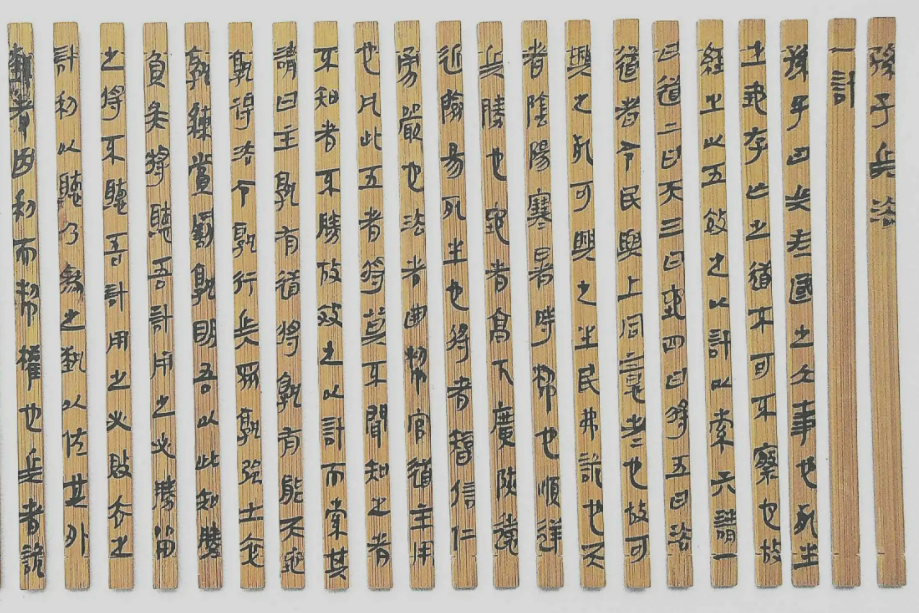 孫子兵法
一計
孫子曰兵者國之大事也死生
之地存亡之道不可不察也故
經之以五效之以計以索其請一
曰道二曰天三曰地四曰將五曰法
道者令民與上同意者也故可
與之死可與之生民弗詭也天
者陰陽寒暑時制也順逆
兵勝也地者高下廣陝遠
近險易死生也將者智信仁
勇嚴也法者曲制官道主用
也凡此五者將莫不聞知之者
不知者不勝故效之以計而索其
請曰主孰有道將孰有能天地
孰得法令孰行兵眾孰强士卒
孰練賞罰孰明吾以此知勝
負矣將聽吾計用之必勝留
之將不聽吾計用之必敗去之
計利以聽乃為之勢以佐其外
勢者因利而制權也兵者詭